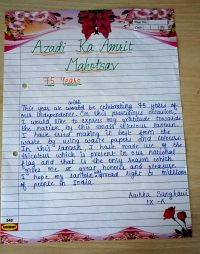 Azadi Ka Amrit
Mahotsav
75 Years
will
This year we would be celebrating 75 years of
our independence. On this precious occasion,
I would like to express my gratitude towards
the nation, by this small
I have tried making it best from the
waste by using waste papers and colours
In this I have made use of the
tricolour which is present in our national
flag and that is the only reason which
makes me so great, honour and pleasure.
I hope my lantern spread light to millions
of people in India.
Aastha Sanghavi
IX-A